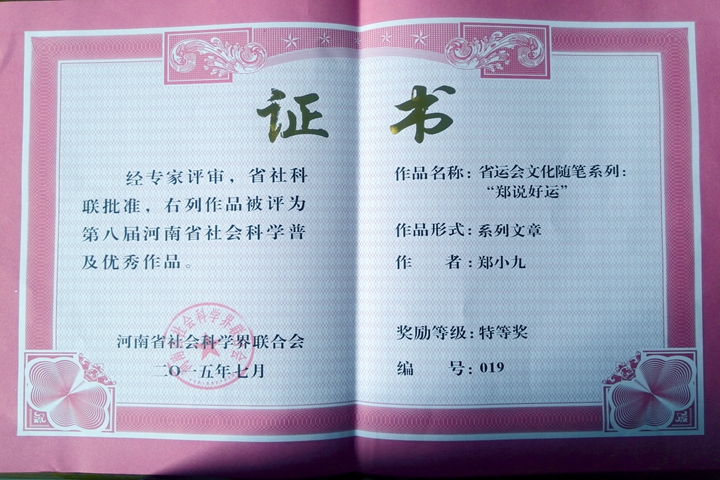 证书
经专家评审，省社科
联批准，右列作品被评为
第八届河南省社会科学普
及优秀作品。
河南省社会科学界联合会
二〇一五年七月
作品名称：省运会文化随笔系列：
“郑说好运”
作品形式：系列文章
作 者：郑小九
奖励等级：特等奖
编 号：019
河南省社会科学界联合会